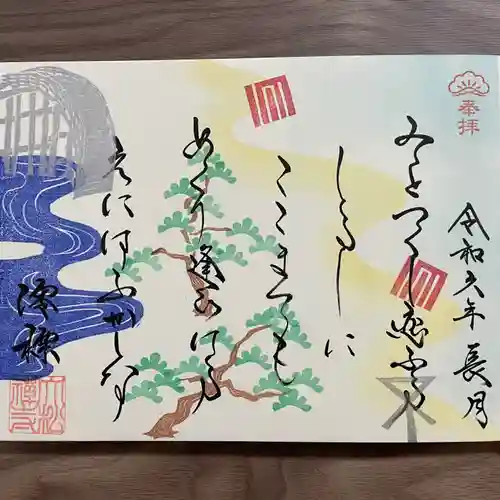 奉拝
令和六年 長月
みをつくし恋ふる
しるしに
ここまても
めくり逢ひける
えにはふかしな
澪標